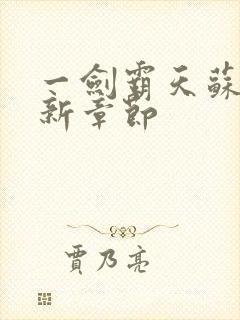 一劍霸天蘇
新章節
賈乃亮